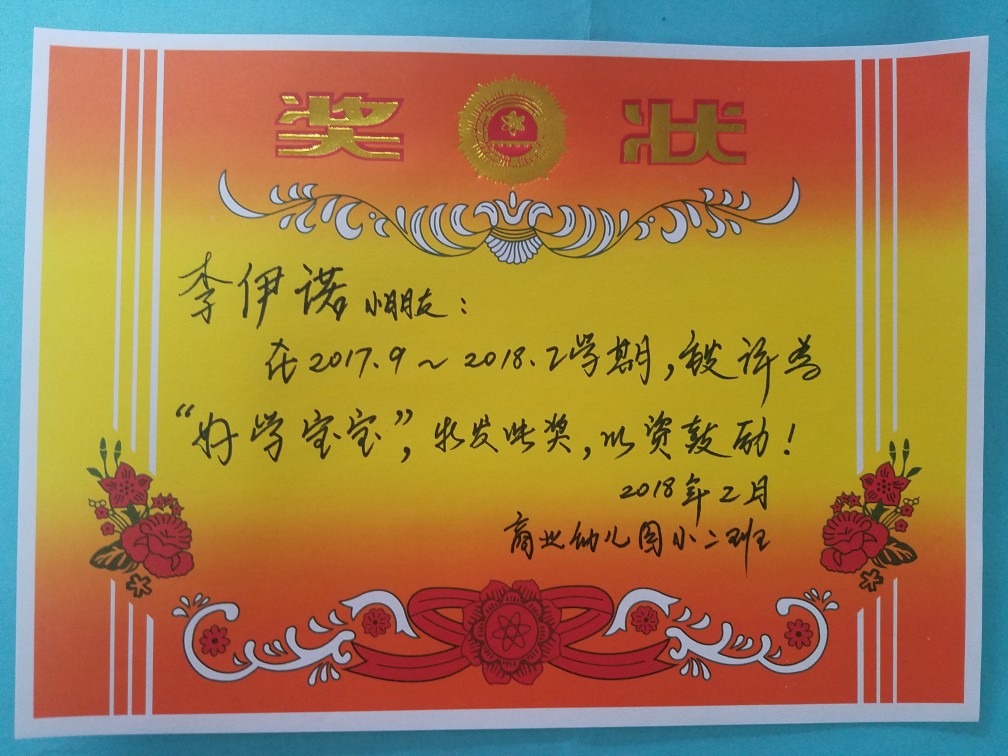 奖状
李伊诺小朋友：
在2017.9～2018.2学期，被评为
“好学宝宝”，特发此奖，以资鼓励！
2018年2月
商业幼儿园小二班